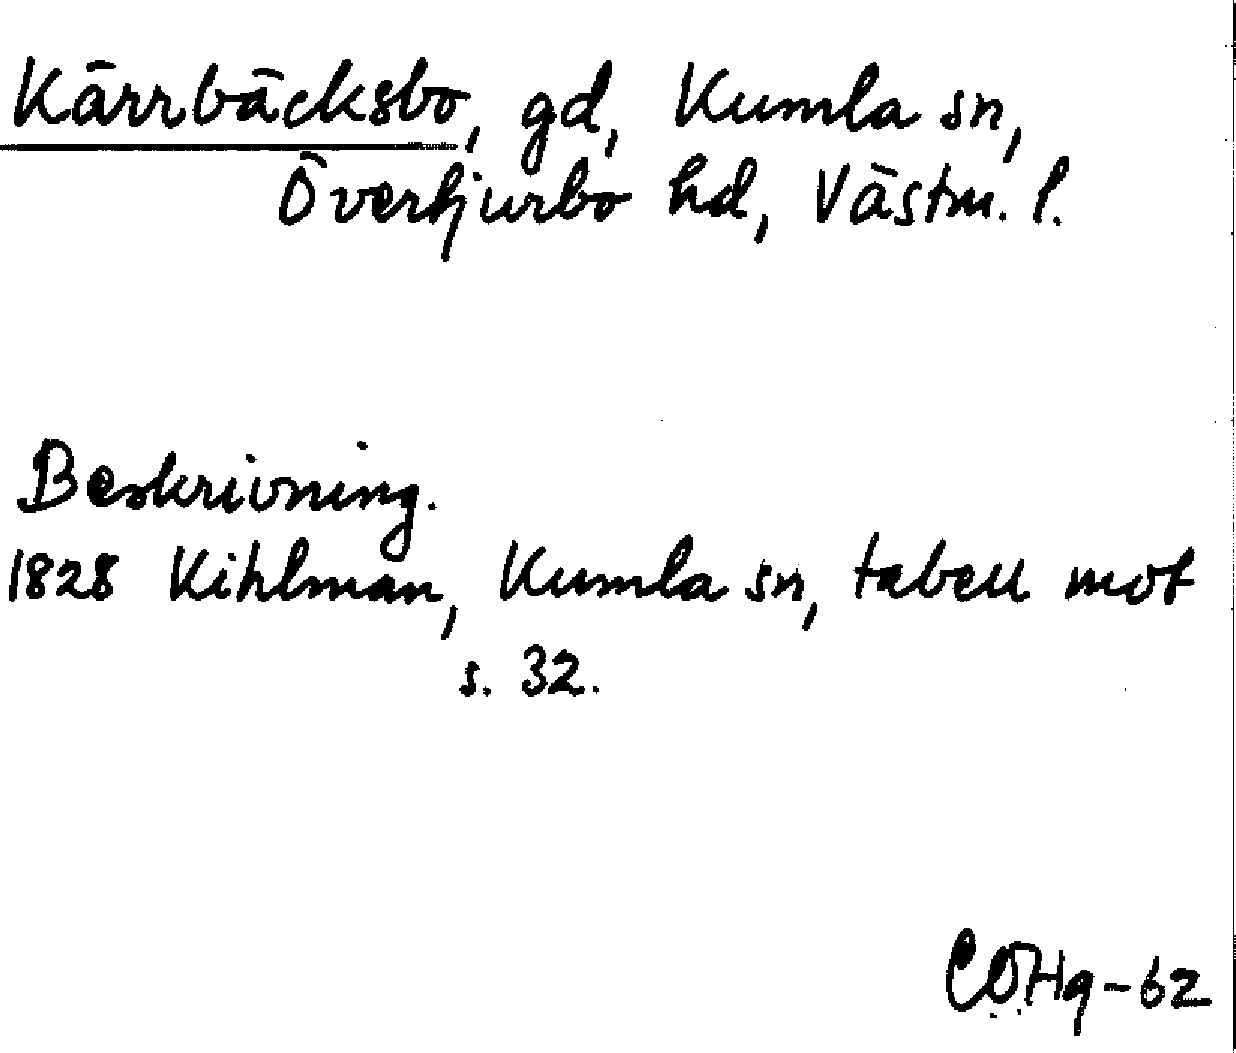 Kärrbäcksbo, gd, Kumla sn,
Övertjurbo hd, Västm. l.
Beskrivning.
1828 Kihlman, Kumla sn, tabell mot
s. 32.
COHg-62